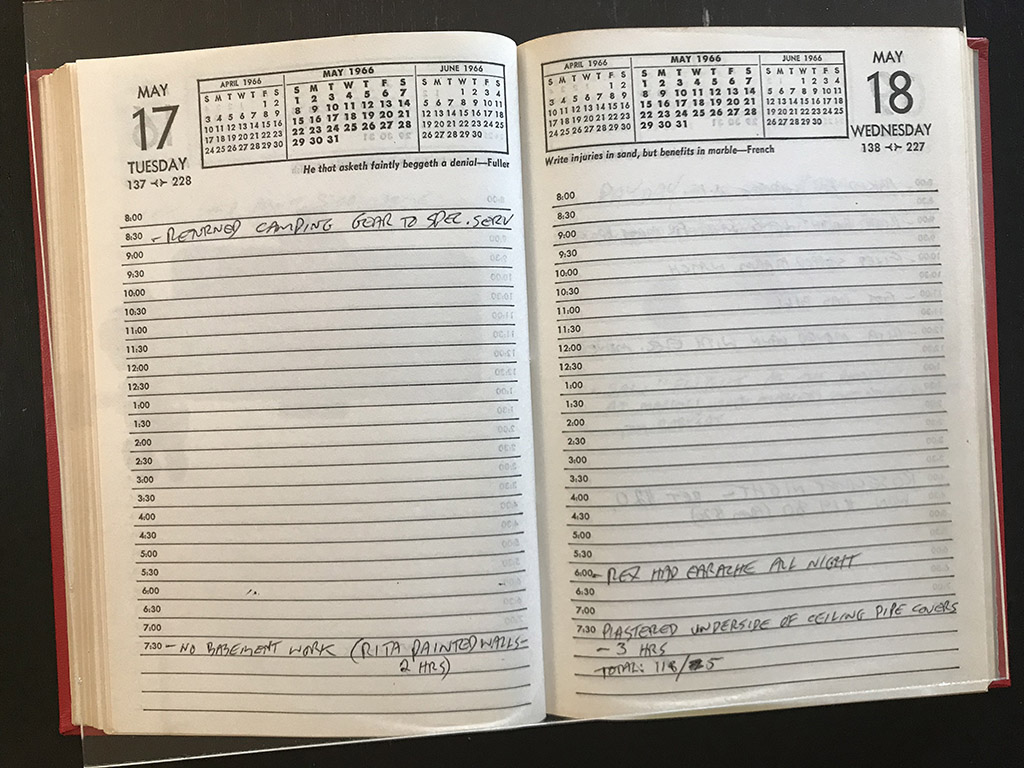 MAY
17
TUESDAY
137 -<>- 228
APRIL 1966
S M T W T F S
1 2
3 4 5 6 7 8 9
10 11 12 13 14 15 16
17 18 19 20 21 22 23
24 25 26 27 28 29 30
MAY 1966
S M T W T F S
1 2 3 4 5 6 7
8 9 10 11 12 13 14
15 16 17 18 19 20 21
22 23 24 25 26 27 28
29 30 31
JUNE 1966
S M T W T F S
1 2 3 4
5 6 7 8 9 10 11
12 13 14 15 16 17 18
19 20 21 22 23 24 25
26 27 28 29 30
He that asketh faintly beggeth a denial—Fuller
8:00
8:30 - RETURNED CAMPING GEAR TO SPEC. SERV
9:00
9:30
10:00
10:30
11:00
11:30
12:00
12:30
1:00
1:30
2:00
2:30
3:00
3:30
4:00
4:30
5:00
5:30
6:00
6:30
7:00
7:30 - NO BASEMENT WORK (RITA PAINTED WALLS-
2 HRS)
APRIL 1966
S M T W T F S
1 2
3 4 5 6 7 8 9
10 11 12 13 14 15 16
17 18 19 20 21 22 23
24 25 26 27 28 29 30
MAY 1966
S M T W T F S
1 2 3 4 5 6 7
8 9 10 11 12 13 14
15 16 17 18 19 20 21
22 23 24 25 26 27 28
29 30 31
JUNE 1966
S M T W T F S
1 2 3 4
5 6 7 8 9 10 11
12 13 14 15 16 17 18
19 20 21 22 23 24 25
26 27 28 29 30
MAY
18
WEDNESDAY
138 -<>- 227
Write injuries in sand, but benefits in marble—French
8:00
8:30
9:00
9:30
10:00
10:30
11:00
11:30
12:00
12:30
1:00
1:30
2:00
2:30
3:00
3:30
4:00
4:30
5:00
5:30
6:00 - REX HAD EARACHE ALL NIGHT
6:30
7:00
7:30 PLASTERED UNDERSIDE OF CEILING PIPE COVERS
- 3 HRS
TOTAL: